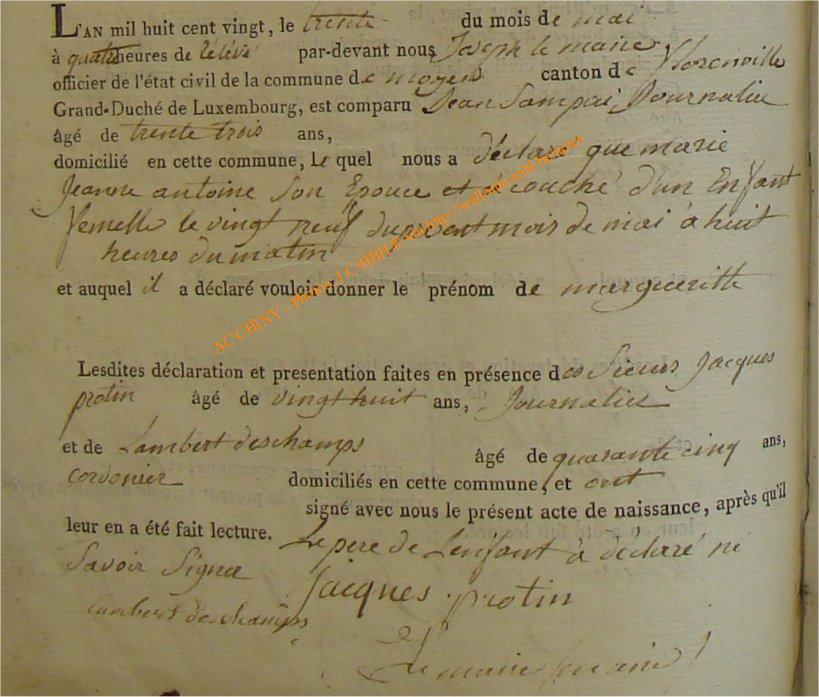 L'AN mil huit cent vingt, le trente du mois de mai
à quatre heures de relevé par-devant nous Joseph le maire
officier de l'état civil de la commune de moyen canton de florenville
Grand-Duché de Luxembourg, est comparu Jean Journalier
âgé de trente trois ans,
domicilié en cette commune, Le quel nous a déclaré que marie
Jeanne antoine son Epouce et accouché d'un Enfant
femelle le vingt neuf du present mois de mai à huit
heures du matin
et auquel il a déclaré vouloir donner le prénom de margueritte
Lesdites déclaration et presentation faites en présence des Sieurs Jacques
protin âgé de vingt huit ans, Journalier
et de Lambert deschamps âgé de quarante cinq ans,
cordonier domiciliés en cette commune, et ont
signé avec nous le présent acte de naissance, après qu'il
leur en a été fait lecture. Le pere de L'enfant à déclaré ne
Savoir Signer
Jacques protin
Lambert deschamps
AC CHINY - Photos J CAHBILL